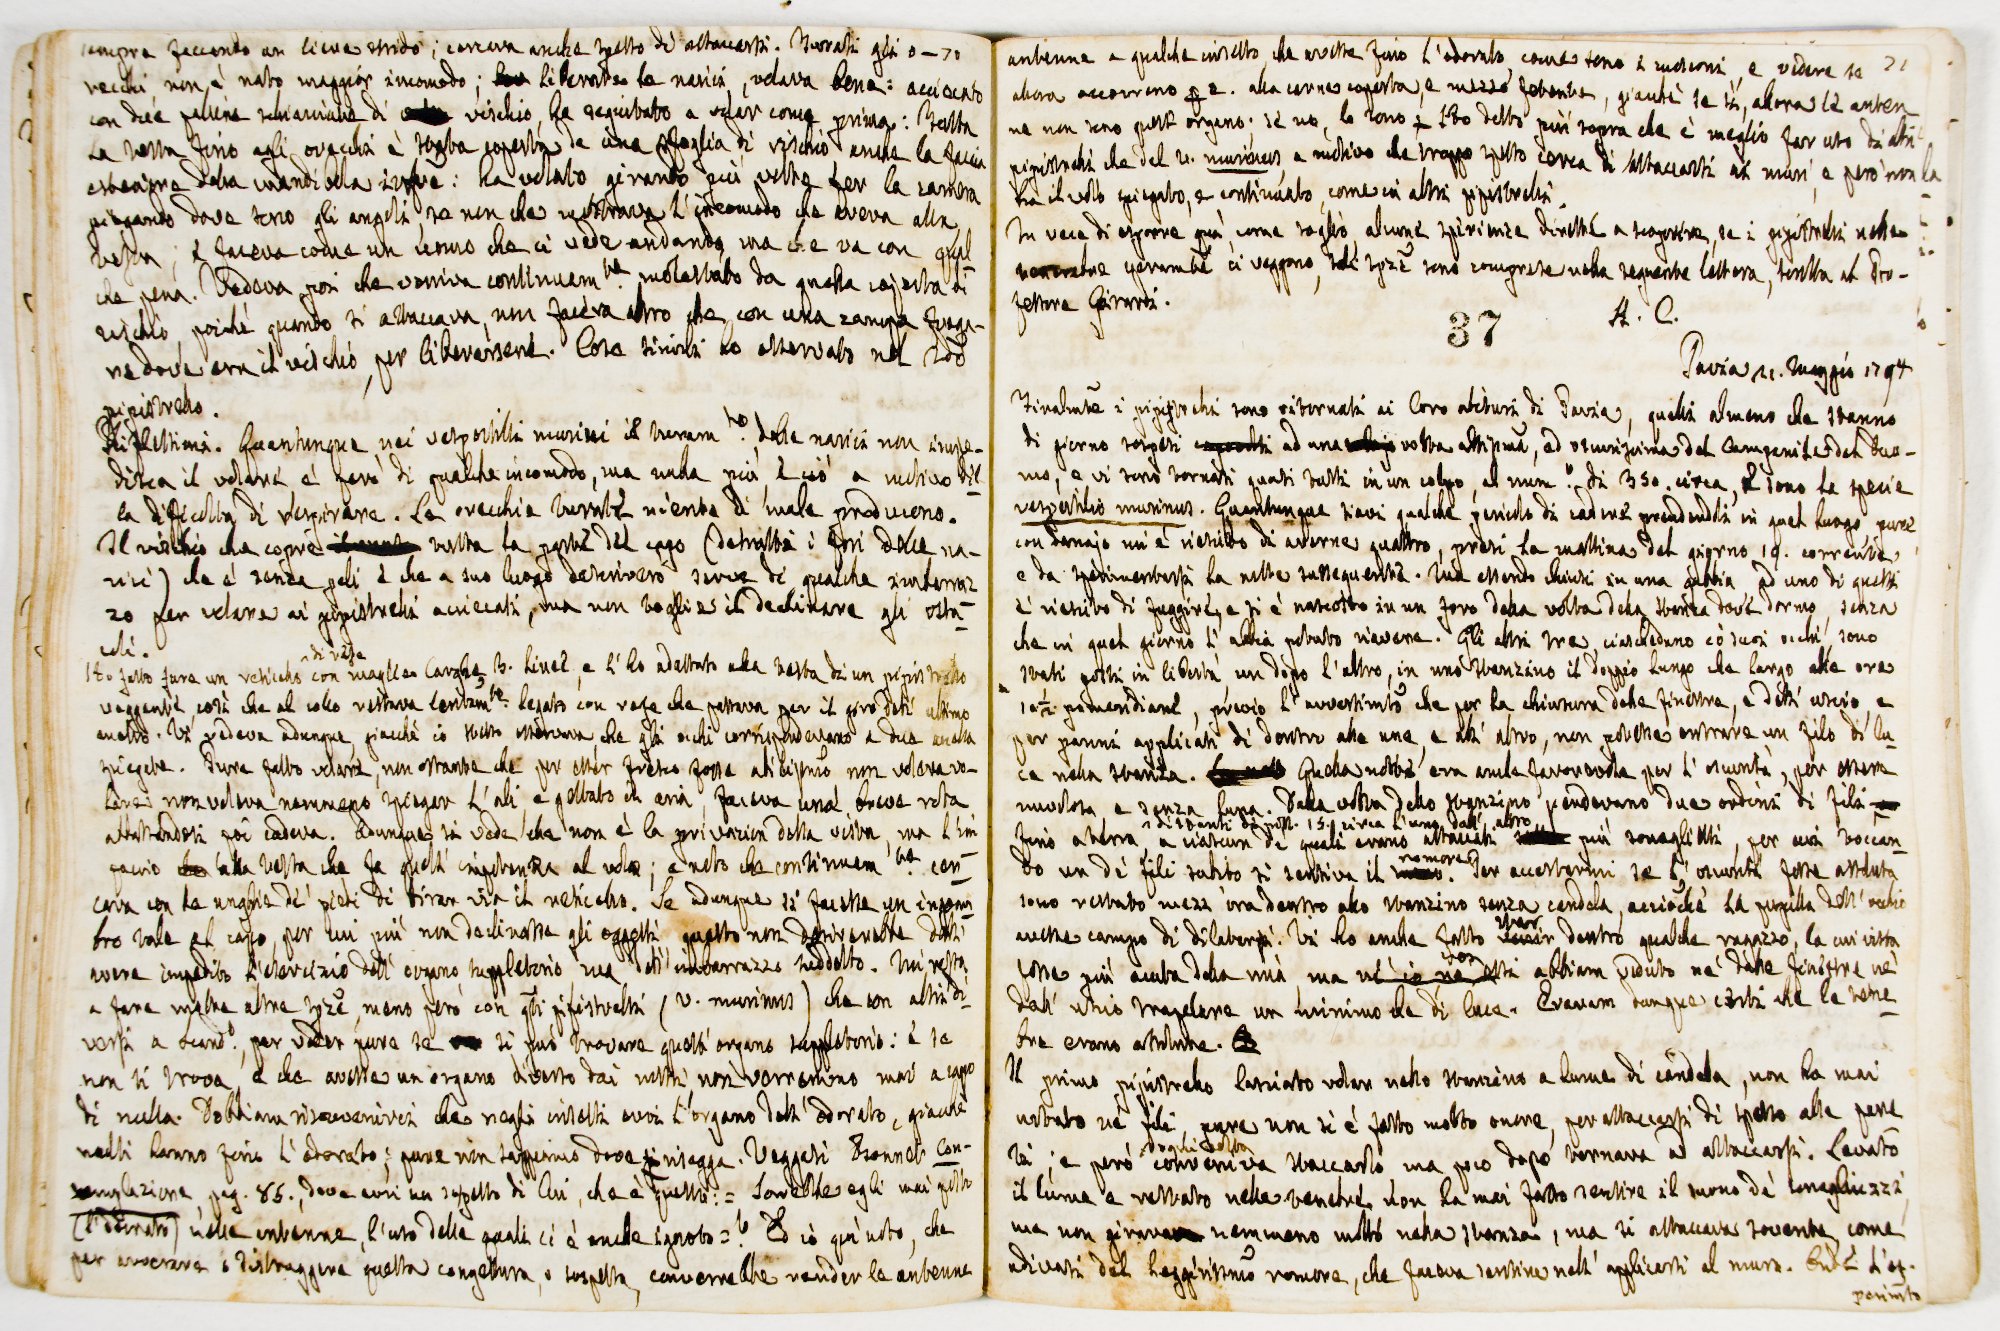 sempre facendo un lieve strido; cercava anche spesso di attaccarsi. Turati gli o-
recchi, non è nato maggior incomodo; liberate le narici, volava bene: acciecato
con due palline schiacciate di vischio, ha seguitato a volar come prima: Tutta
la testa fino agli orecchi è stata coperta da una sfoglia di vischio, anche la faccia
esteriore della mandibola: ha volato girando più volte per la camera
piegando dove sono gli angoli, se non che mostrava l'incomodo che aveva alla
testa; e faceva come un uomo che ci vede andando, ma che va con qual
che pena. Vedeva poi che veniva continuam.te molestato da quella coperta di
vischio, poiché quando si attaccava, non faceva altro che con una zampa frega-
re dove era il vischio, per liberarsene. Cose simili ho osservato nel 2do
pipistrello.
Riflessioni. Quantunque nei vespertilli murini il turam.to delle narici non impe-
disca il volare è però di qualche incomodo, ma nulla più, e ciò a motivo del
la difficoltà di respirare. Le orecchie turate niente di male producono.
Il vischio che copre tutta la parte del capo (detratti i fori delle na-
rici) che è senza peli e che a suo luogo descriverò serve di qualche imbaraz
zo per volare ai pipistrelli acciecati, ma non toglie il declinare gli osta-
coli.
Ho fatto fare un reticello di refe con maglie larghe 3. linee, e l'ho adattato alla testa di un pipistrello
veggente così che al collo restava legato con refe che passava per il giro dell'ultimo
anello. Vi vedeva adunque, giacché io stesso osservava, che gli occhi corrispondevano a due anella
spiegate. Pure fatto volare, non ostante che per esser fresco fosse non voleva vo-
lare non voleva nemmeno spiegar l'ali e gettato in aria, faceva una breve rota
abbassandosi poi cadeva. Adunque si vede che non è la privazion della vista, ma l'im
paccio alla testa che fa questa impotenza al volo; e noto che continuam.te cer-
cava con le unghie de' piedi di tirar via il reticello. Se adunque si facesse un ingom
bro tale al capo, per cui più non declinasse gli oggetti questo non deriverebbe dall'
avere impedito l'esercizio dell'organo suppletorio ma dall'imbarazzo suddetto. Mi resta
a fare molte altre spze, meno però con questi pipistrelli (v. murinus) che con altri di-
versi a Scand.o, per veder pure se si può trovare quest'organo suppletorio: e se
non si trova, e che avesse un organo diverso dai nostri non verremmo mai a capo
di nulla. Dobbiam risovvenirci che negli insetti avvi l'organo dell'odorato, giacché
molti hanno fino l'odorato; pure non sappiamo dove risegga. Veggasi Bonnet Con-
templazione pag. 85., dove avvi un sospetto di lui, che è questo: = Sarebbe egli mai posto
(l'odorato) nelle antenne, l'uso delle quali ci è anche ignoto =? Ed io qui noto, che
per avverare o distruggere questa congettura, o sospetto, converrebbe render le antenne
21
antenne a qualche insetto, che avesse fino l'odorato come sono i mosconi, e vedere se
allora accorrono p. e. alla carne coperta, e mezzo fetente, giacché se sì, allora le anten
ne non sono quest'organo; se no, lo sono. Ho detto più sopra che è meglio far uso di altri
pipistrelli che del v. murinus, a motivo che troppo spesso cerca di attaccarsi ai muri, e però non
ha il volo spiegato, e continuato, come in altri pipistrelli.
In vece di esporre quà, come soglio, alcune sperienze dirette a scoprire, se i pipistrelli nelle
tenebre veramte ci veggono, tali spze sono comprese nella seguente lettera, scritta al Pro-
fessore Girardi.
A. C.
37
Pavia 21. Maggio 1794
Finalmte i pipistrelli sono ritornati ai loro abituri di Pavia, quelli almeno che stanno
di giorno sospesi ad una volta altissima, ed oscurissima del Campanile del Duo-
mo, e vi sono tornati quasi tutti in un colpo, al num.o di 350. circa, e sono la specie
vespertilio murinus. Quantunque siavi qualche pericolo di cadere prendendoli in quel luogo pure
con danajo mi è riescito di averne quattro, presi la mattina del giorno 19. corrente,
e da spedimentarsi la notte susseguente. Ma essendo chiusi in una gabbia ad uno di questi
è riescito di fuggire, e si è nascosto in un foro della volta della stanza dove dormo, senza
che in quel giorno l'abbia potuto riavere. Gli altri tre, ciascheduno co' suoi occhi, sono
stati posti in libertà un dopo l'altro, in uno stanzino il doppio lungo che largo alle ore
10½ pomeridiane, previo l'avvertimto che per la chiusura delle finestre, e dell'uscio, e
per panni applicati di dentro alle une, e all'altro, non potesse entrare un filo di lu-
ce nella stanza. Quella notte era anche favorevole per l'oscurità, per essere
nuvolosa e senza luna. Dalla volta dello stanzino pendevano due ordini di fili
fino a terra, distanti da poll. 15. circa l'uno dall'altro, a ciascun de' quali erano attaccati più sonaglietti, per cui toccan-
do un de' fili subito si sentiva il romore. Per accertarmi se l'oscurità fosse assoluta
sono restato mezz'ora dentro allo stanzino senza candela, acciocché la pupilla dell'occhio
avesse campo di dilatarsi. Vi ho anche fatto star dentro qualche ragazzo, la cui vista
fosse più acuta della mia, ma né io né essi abbiam veduto né dalle finestre né
dall'uscio trapelare un minimo che di luce. Eravam dunque certi che le tene-
bre erano assolute.
Il primo pipistrello lasciato volar nello stanzino a lume di candela, non ha mai
urtato ne' fili, pure non si è fatto molto onore, per attaccarsi di spesso alle pare
ti; e però conveniva staccarlo ma poco dopo tornava ad attaccarsi. Levato
il lume e restato nelle tenebre, non ha mai fatto sentire il suono de' sonagliuzzi,
ma non girava nemmeno molto nella stanza, ma si attaccava sovente, come
udivasi dal leggerissimo romore, che faceva sentire nell'applicarsi al muro. L'es-
perimto